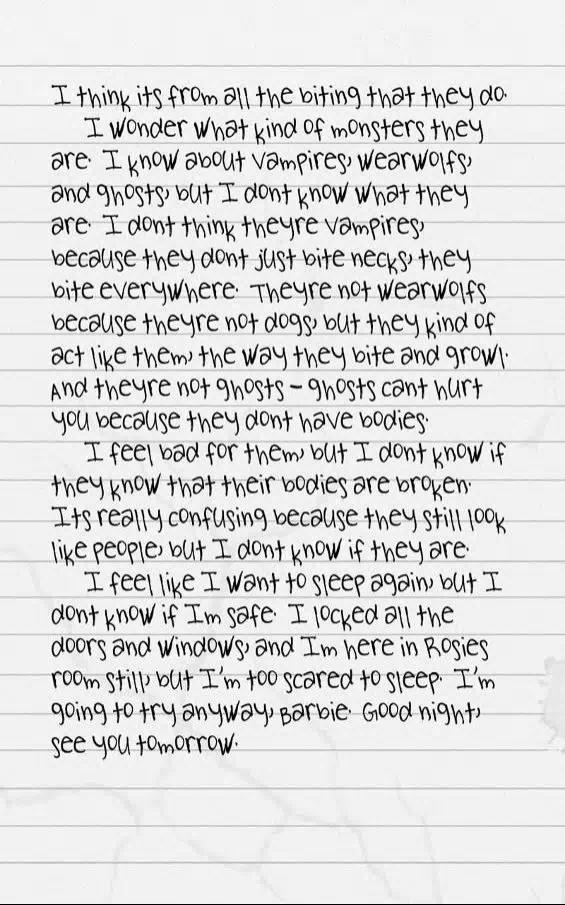 I think its from all the biting that they do.
I wonder what kind of monsters they
are. I know about vampires, wearwolfs,
and ghosts, but I dont know what they
are. I dont think theyre vampires,
because they dont just bite necks, they
bite everywhere. Theyre not wearwolfs
because theyre not dogs, but they kind of
act like them, the way they bite and growl.
And theyre not ghosts – ghosts cant hurt
you because they dont have bodies.
I feel bad for them, but I dont know if
they know that their bodies are broken.
Its really confusing because they still look
like people, but I dont know if they are.
I feel like I want to sleep again, but I
dont know if Im safe. I locked all the
doors and windows, and Im here in Rosies
room still, but I'm too scared to sleep. I'm
going to try anyway, Barbie. Good night,
see you tomorrow.